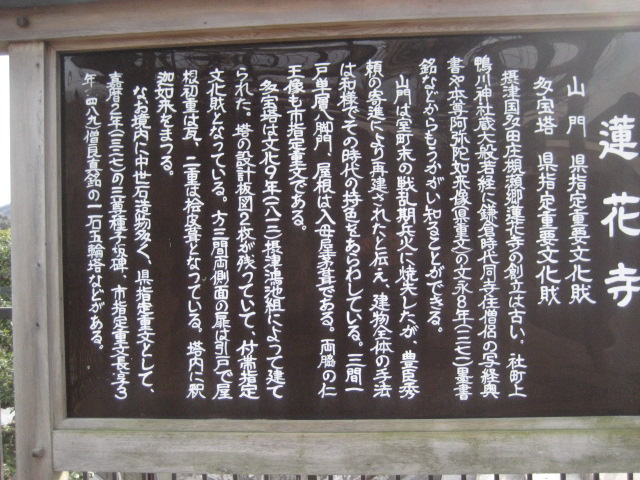 蓮花寺
山門 県指定重要文化財
多宝塔 県指定重要文化財
摂津国多田庄槻瀬郷蓮花寺の創立は古い。社町上
鴨川神社蔵大般若経に鎌倉時代同寺住僧侶の写経奥
書や本尊阿弥陀如来像(県重文)の文永8年(一二七一)墨書
銘などからもうかがい知ることができる。
山門は室町末の戦乱期兵火に焼失したが、豊臣秀
頼の寄進により再建されたと伝え、建物全体の手法
は和様でその時代の特色をあらわしている。三間一
戸単層八脚門、屋根は入母屋茅葺である。両脇の仁
王像も市指定重文である。
多宝塔は文化9年(一八一二)摂津鴻池組によって建て
られた。塔の設計板図2枚が残っていて、付帯指定
文化財となっている。方三間両側面の扉は引戸で屋
根初重は瓦、二重は桧皮葺となっている。塔内に釈
迦如来をまつる。
なお境内に中世石造物多く、県指定重文として、
嘉暦2年(一三二七)の三尊種子板碑、市指定重文長享3
年(一四八九)僧良真銘の一石五輪塔などがある。